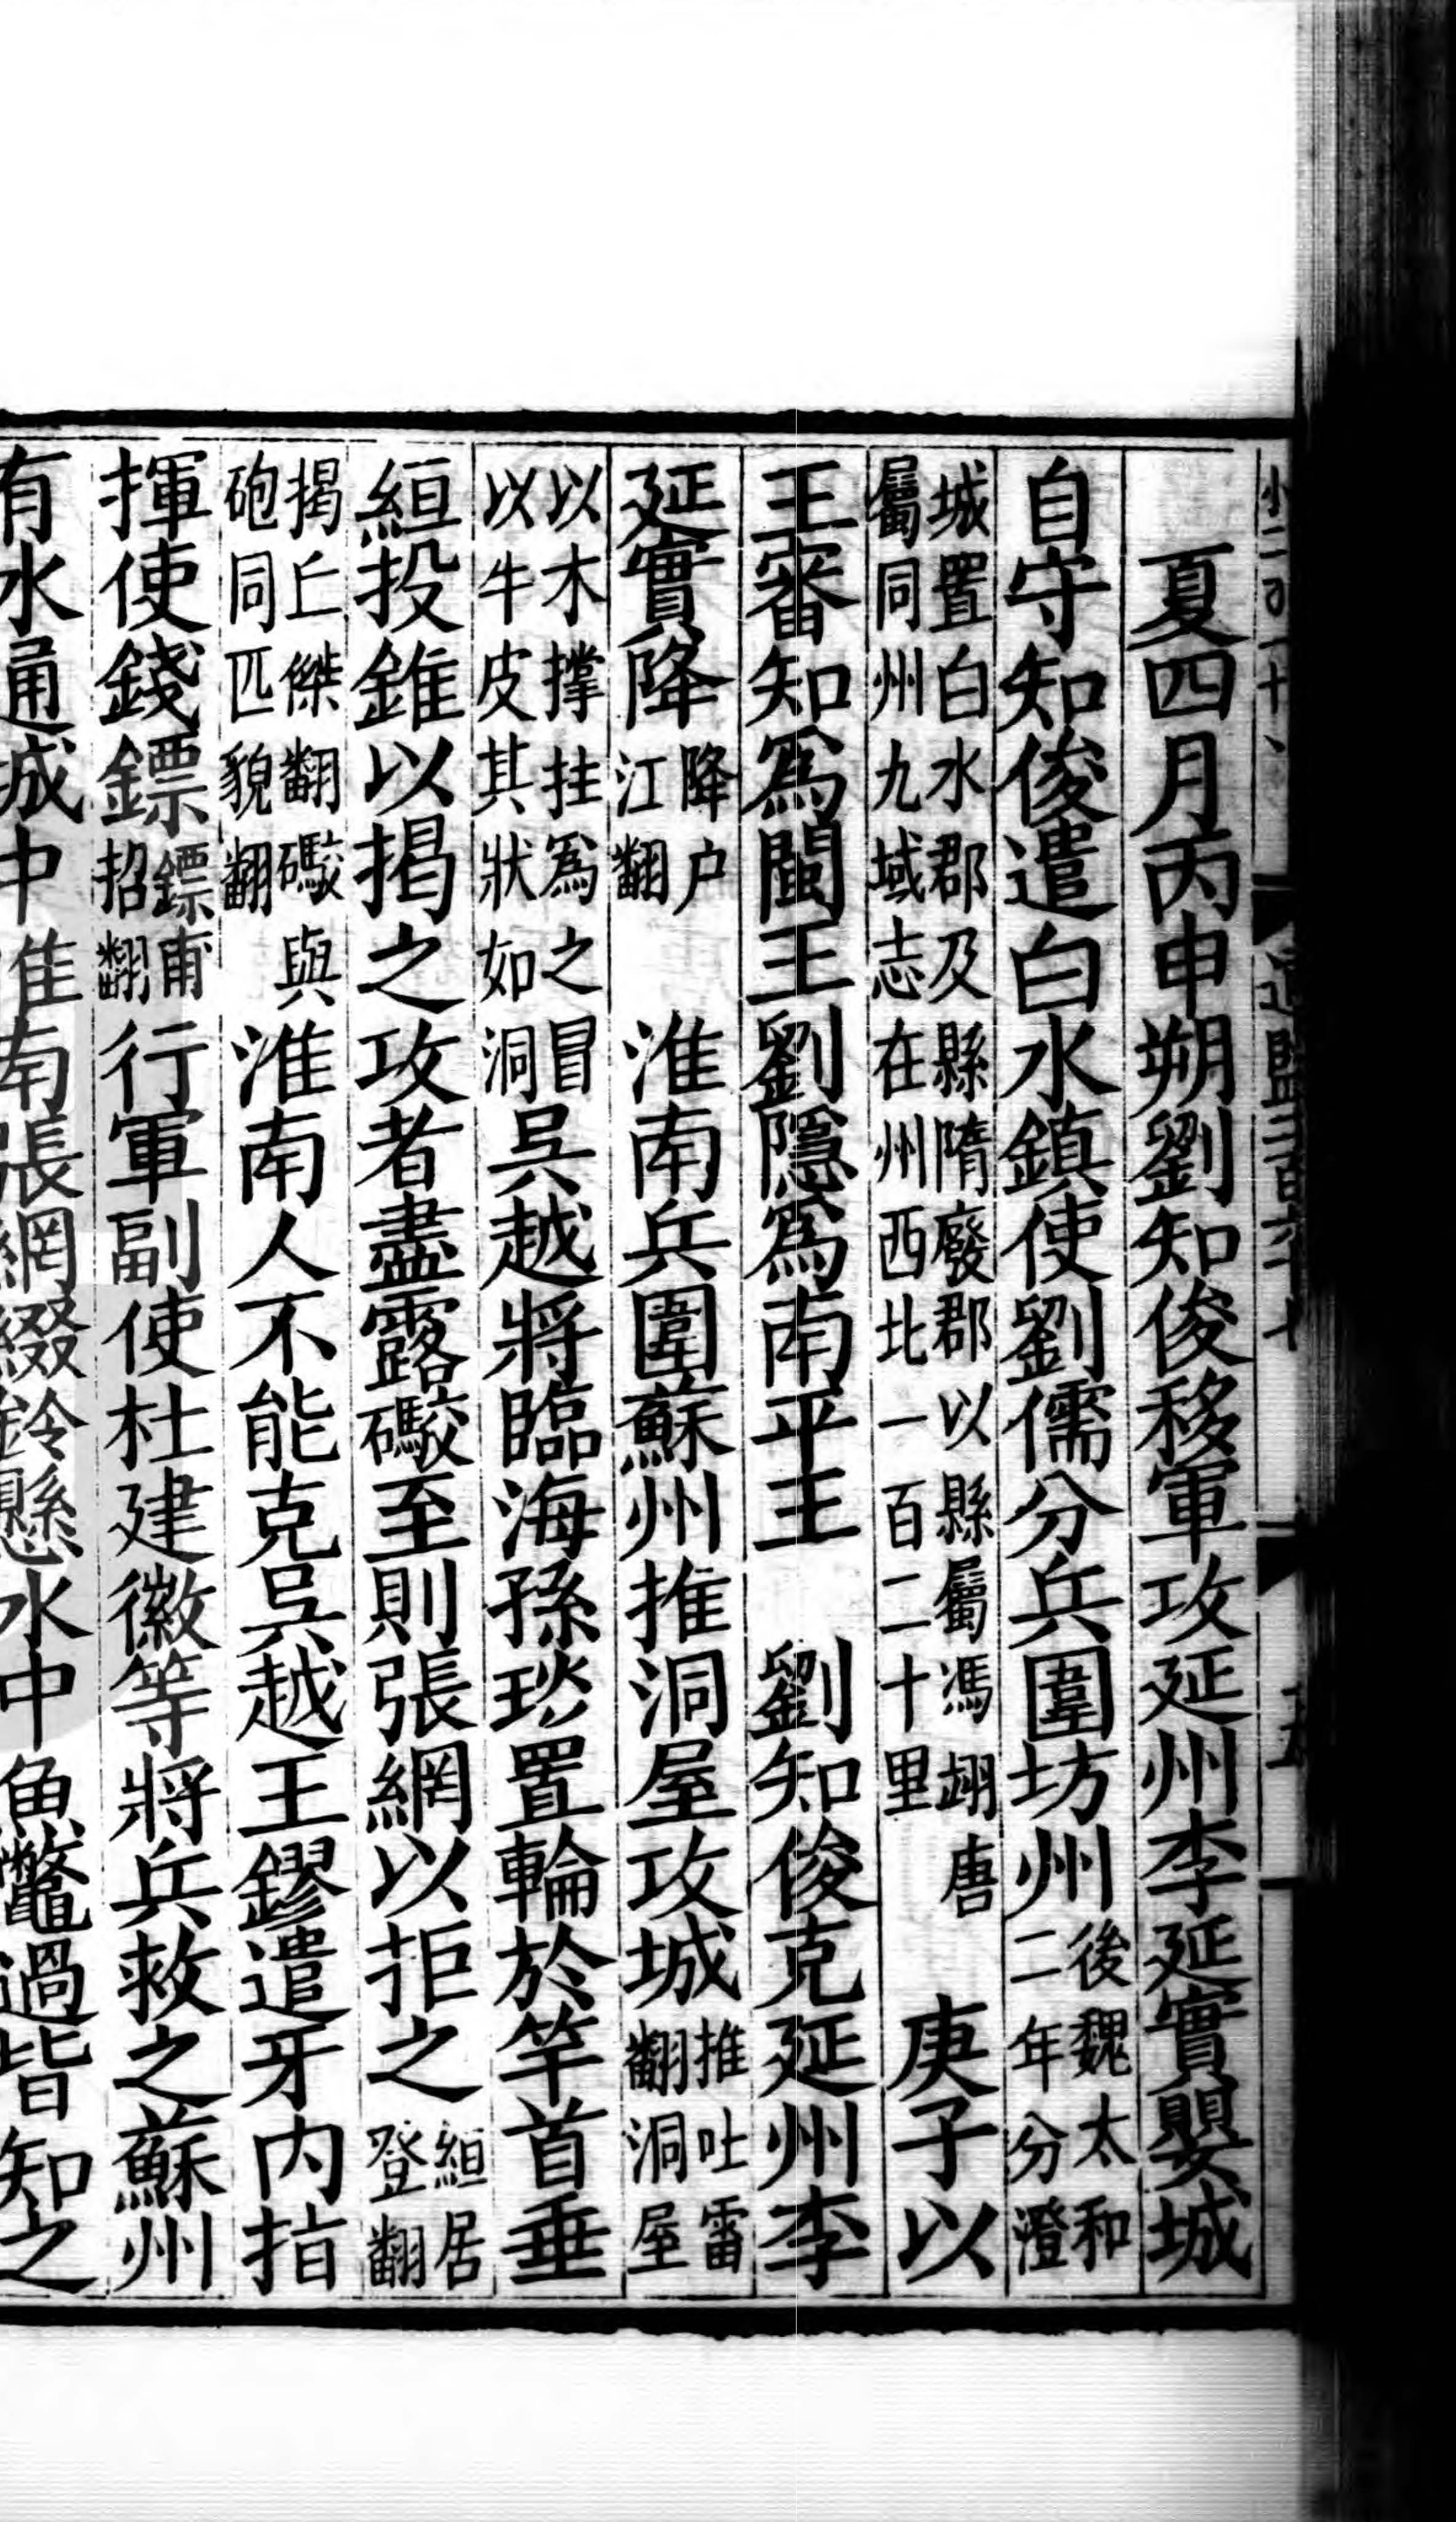 夏四月丙申朔劉知俊移軍攻延州李延實嬰城
自守知俊遣白水鎮使劉儒分兵圍坊州後魏太和二年分澄
城置白水郡及縣隋廢郡以縣屬馮翊唐屬同州九域志在州西北一百二十里 庚子以
王審知爲閩王劉隱爲南平王 劉知俊克延州李
延實降降户江翻 淮南兵圍蘇州推洞屋攻城推吐雷翻洞屋
以木撐拄爲之冒以牛皮其狀如洞吳越將臨海孫琰置輪於竿首垂
絙投錐以揭之攻者盡露礮至則張網以拒之絙居登翻
揭丘傑翻礮與砲同匹貌翻淮南人不能克吳越王鏐遣牙内指
揮使錢鏢鏢甫招翻行軍副使杜建徽等將兵救之蘇州
有水通城中淮南張網綴鈴懸水中魚鼈過皆知之